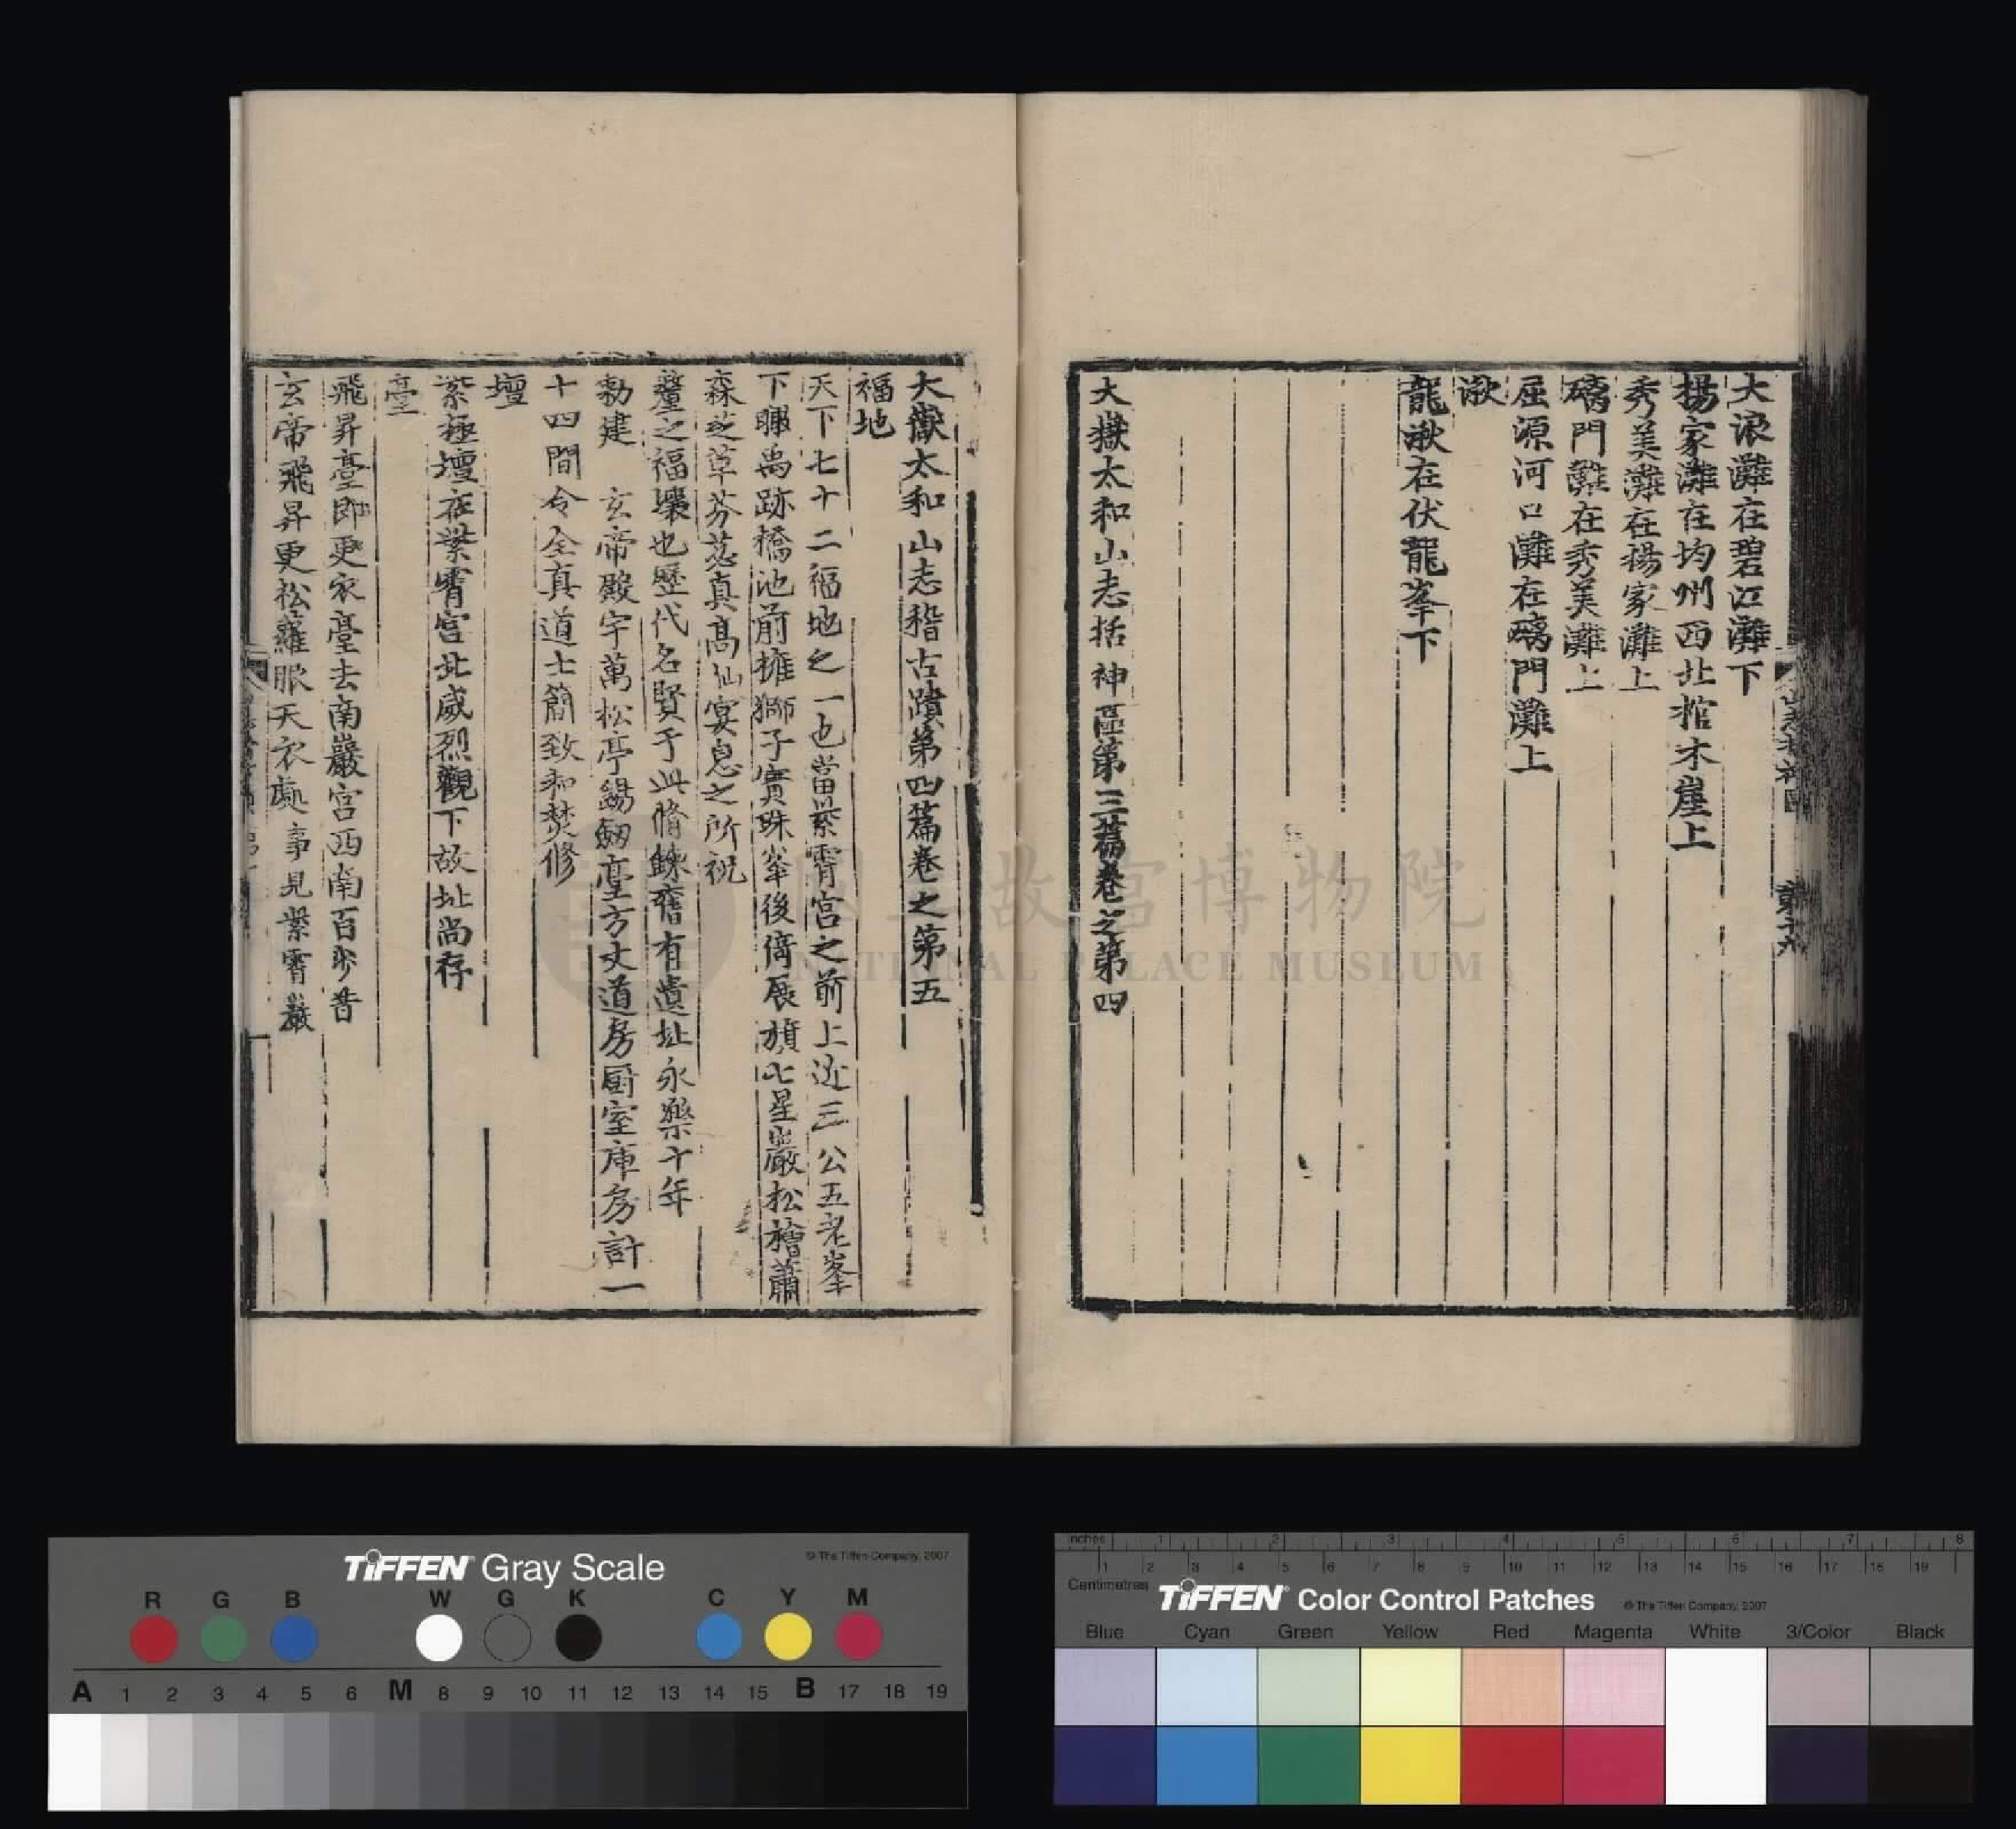 大浪灘在碧江灘下
揚家灘在均州西北棺木崖上
秀美灘在揚家灘上
礄門灘在秀美灘上
屈源河口灘在礄門灘上
湫
龍湫在伏龍峯下
大嶽太和山志括神區第三篇卷之第四
大嶽太和山志稽古蹟第四篇卷之第五
福地
天下七十二福地之一也當紫霄宮之前上近三公五老峯
下瞰禹跡橋池前擁獅子寳珠峯後倚展旗七星巖松檜蕭
森芝草芬苾真高仙宴息之所祝
釐之福壤也歷代名賢于此脩鍊舊有遺址永樂十年
勑建 玄帝殿宇萬松亭錫劔臺方丈道房廚室庫房計一
十四間令全真道士簡致和焚修
壇
紫極壇在紫霄宮北威烈觀下故址尚存
臺
飛昇臺即更衣臺去南巖宮西南百步昔
玄帝飛昇更松蘿服天衣處事見紫霄巖
國立故宮博物院
NATIONAL PALACE MUSEUM
TIFFEN Gray Scale
© The Tiffen Company, 2007
R G B W G K C Y M
A 1 2 3 4 5 6 M 8 9 10 11 12 13 14 15 B 17 18 19
Inches 1 2 3 4 5 6 7 8
1 2 3 4 5 6 7 8 9 10 11 12 13 14 15 16 17 18 19
Centimetres
TIFFEN Color Control Patches
© The Tiffen Company, 2007
Blue Cyan Green Yellow Red Magenta White 3/Color Black